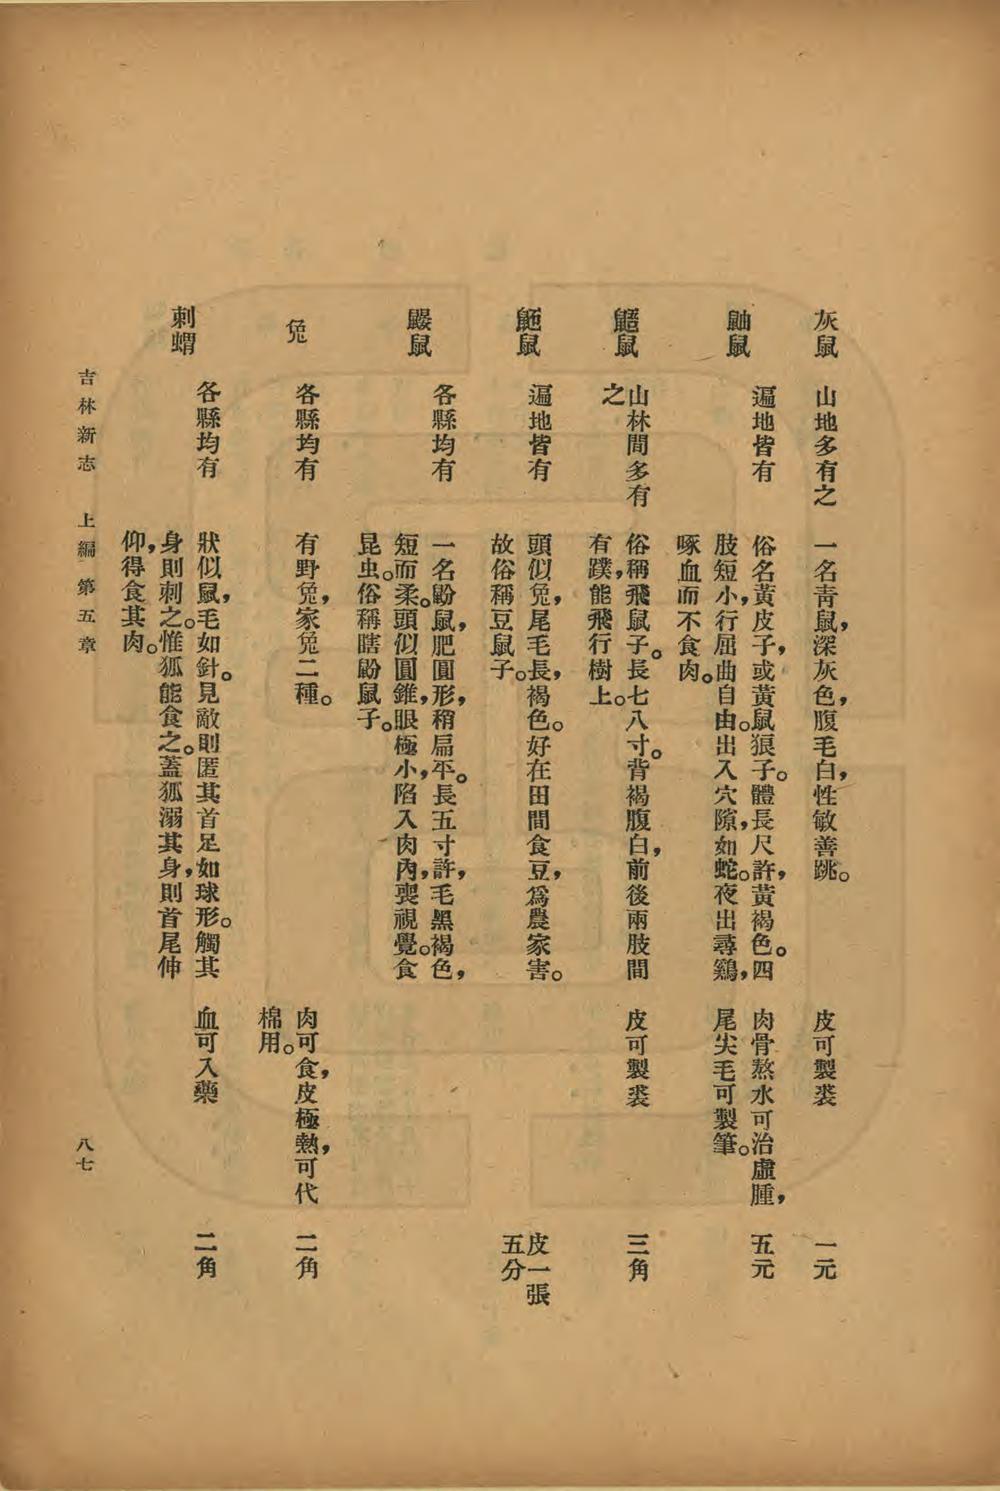 灰鼠　山地多有之　一名青鼠，深灰色，腹毛白，性敏善跳。　皮可製裘　一元
鼬鼠　遍地皆有　俗名黃皮子，或黃鼠狼子。體長尺許，黃褐色。四　肉骨熬水可治虛腫，　五元
肢短小，行屈曲自由。出入穴隙，如蛇。夜出尋鷄，　尾尖毛可製筆。
啄血而不食肉。
鼯鼠　山林間多有　俗稱飛鼠子。長七八寸。背褐腹白，前後兩肢間　皮可製裘　三角
之　有蹼，能飛行樹上。
鼠　遍地皆有　頭似兔，尾毛長，褐色。好在田間食豆，爲農家害。　皮一張
故俗稱豆鼠子。　五分
鼴鼠　各縣均有　一名鼢鼠，肥圓形，稍扁平。長五寸許，毛黑褐色，
短而柔。頭似圓錐，眼極小，陷入肉內，喪視覺。食
昆虫。俗稱瞎鼢鼠子。
兔　各縣均有　有野兔，家兔二種。　肉可食，皮極熱，可代　二角
棉用。
刺蝟　各縣均有　狀似鼠，毛如針。見敵則匿其首足如球形。觸其　血可入藥　二角
身則刺之。惟狐能食之。蓋狐溺其身，則首尾伸
仰，得食其肉。
吉林新志　上編　第五章　八七